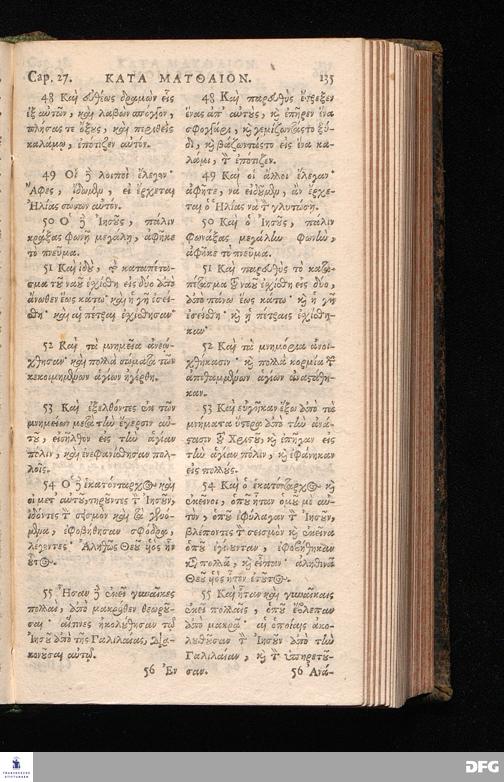 Cap. 27. ΚΑΤΑ ΜΑΤΘΑΙΟΝ. 135
48 Καὶ εὐθέως δραμὼν εἷς
ἐξ αὐτῶν, καὶ λαβὼν σπόγγον,
πλήσας τε ὄξους, καὶ περιθεὶς
καλάμῳ, ἐπότιζεν αὐτόν.
49 Οἱ δὲ λοιποὶ ἔλεγον·
Ἄφες, ἴδωμεν, εἰ ἔρχεται
Ἠλίας σώσων αὐτόν.
50 Ὁ δὲ Ἰησοῦς, πάλιν
κράξας φωνῇ μεγάλῃ, ἀφῆκε
τὸ πνεῦμα.
51 Καὶ ἰδοὺ, τὸ καταπέτα-
σμα τοῦ ναοῦ ἐσχίσθη εἰς δύο ἀπὸ
ἄνωθεν ἕως κάτω· καὶ ἡ γῆ ἐσεί-
σθη· καὶ αἱ πέτραι ἐσχίσθησαν·
52 Καὶ τὰ μνημεῖα ἀνεῴ-
χθησαν· καὶ πολλὰ σώματα τῶν
κεκοιμημένων ἁγίων ἠγέρθη.
53 Καὶ ἐξελθόντες ἐκ τῶν
μνημείων μετὰ τὴν ἔγερσιν αὐ-
τοῦ, εἰσῆλθον εἰς τὴν ἁγίαν
πόλιν, καὶ ἐνεφανίσθησαν πολ-
λοῖς.
54 Ὁ δὲ ἑκατόνταρχος καὶ
οἱ μετ' αὐτοῦ, τηροῦντες τὸν Ἰησοῦν,
ἰδόντες τὸν σεισμὸν καὶ τὰ γενό-
μενα, ἐφοβήθησαν σφόδρα,
λέγοντες· Ἀληθῶς Θεοῦ υἱὸς ἦν
οὗτος.
55 Ἦσαν δὲ ἐκεῖ γυναῖκες
πολλαὶ, ἀπὸ μακρόθεν θεωροῦ-
σαι· αἵτινες ἠκολούθησαν τῷ
Ἰησοῦ ἀπὸ τῆς Γαλιλαίας, δια-
κονοῦσαι αὐτῷ.
56 Ἐν
48 Καὶ παρευθὺς ἔτρεξεν
ἕνας ἀπ' αὐτοὺς, καὶ ἐπῆρεν ἕνα
σφογγάρι, καὶ γεμίζωντάς το ξύ-
δι, καὶ βάζωντάς το εἰς ἕνα κα-
λάμι, τὸν ἐπότιζεν.
49 Καὶ οἱ ἄλλοι ἔλεγαν·
ἀφῆτε, νὰ εἰδοῦμεν, ἂν ἔρχε-
ται ὁ Ἠλίας νὰ τὸν γλυτώσῃ.
50 Καὶ ὁ Ἰησοῦς, πάλιν
φωνάξας μεγάλην φωνὴν,
ἀφῆκε τὸ πνεῦμα.
51 Καὶ παρευθὺς τὸ κατα-
πέτασμα τοῦ ναοῦ ἐσχίσθη εἰς δύο,
ἀπὸ πάνω ἕως κάτω· καὶ ἡ γῆ
ἐσείσθη· καὶ ἡ πέτραις ἐσχίσθη-
καν·
52 Καὶ τὰ μνημόρια ἀνοί-
χθήκασιν· καὶ πολλὰ κορμία τῶν
ἀποθαμμένων ἁγίων ἀναστάθη-
καν.
53 Καὶ εὐγῆκαν ἔξω ἀπὸ τὰ
μνήματα ὕστερα ἀπὸ τὴν ἀνά-
στασιν τοῦ Χριστοῦ, καὶ ἐπῆγαν εἰς
τὴν ἁγίαν πόλιν, καὶ ἐφάνηκαν
εἰς πολλούς.
54 Καὶ ὁ ἑκατόνταρχος καὶ
ἐκεῖνοι, ὁποῦ ἦταν ὁμοῦ μὲ αὐ-
τὸν, ὁποῦ ἐφύλαγαν τὸν Ἰησοῦν,
βλέποντες τὸν σεισμὸν καὶ ἐκεῖνα
ὁποῦ ἐγίνονταν, ἐφοβήθηκαν
πολλὰ, καὶ εἶπαν· ἀληθινὰ
Θεοῦ υἱὸς ἦτον ἐτοῦτος.
55 Καὶ ἦταν καὶ γυναῖκαις
ἐκεῖ πολλαῖς, ὁποῦ ἔβλεπαν
ἀπὸ μακρὰ· αἱ ὁποίαις ἀκο-
λούθησαν τὸν Ἰησοῦν ἀπὸ τὴν
Γαλιλαίαν, καὶ τὸν ὑπηρετοῦ-
σαν.
56 Ἀνά-
FRANCKESCHE
STIFTUNGEN
DFG